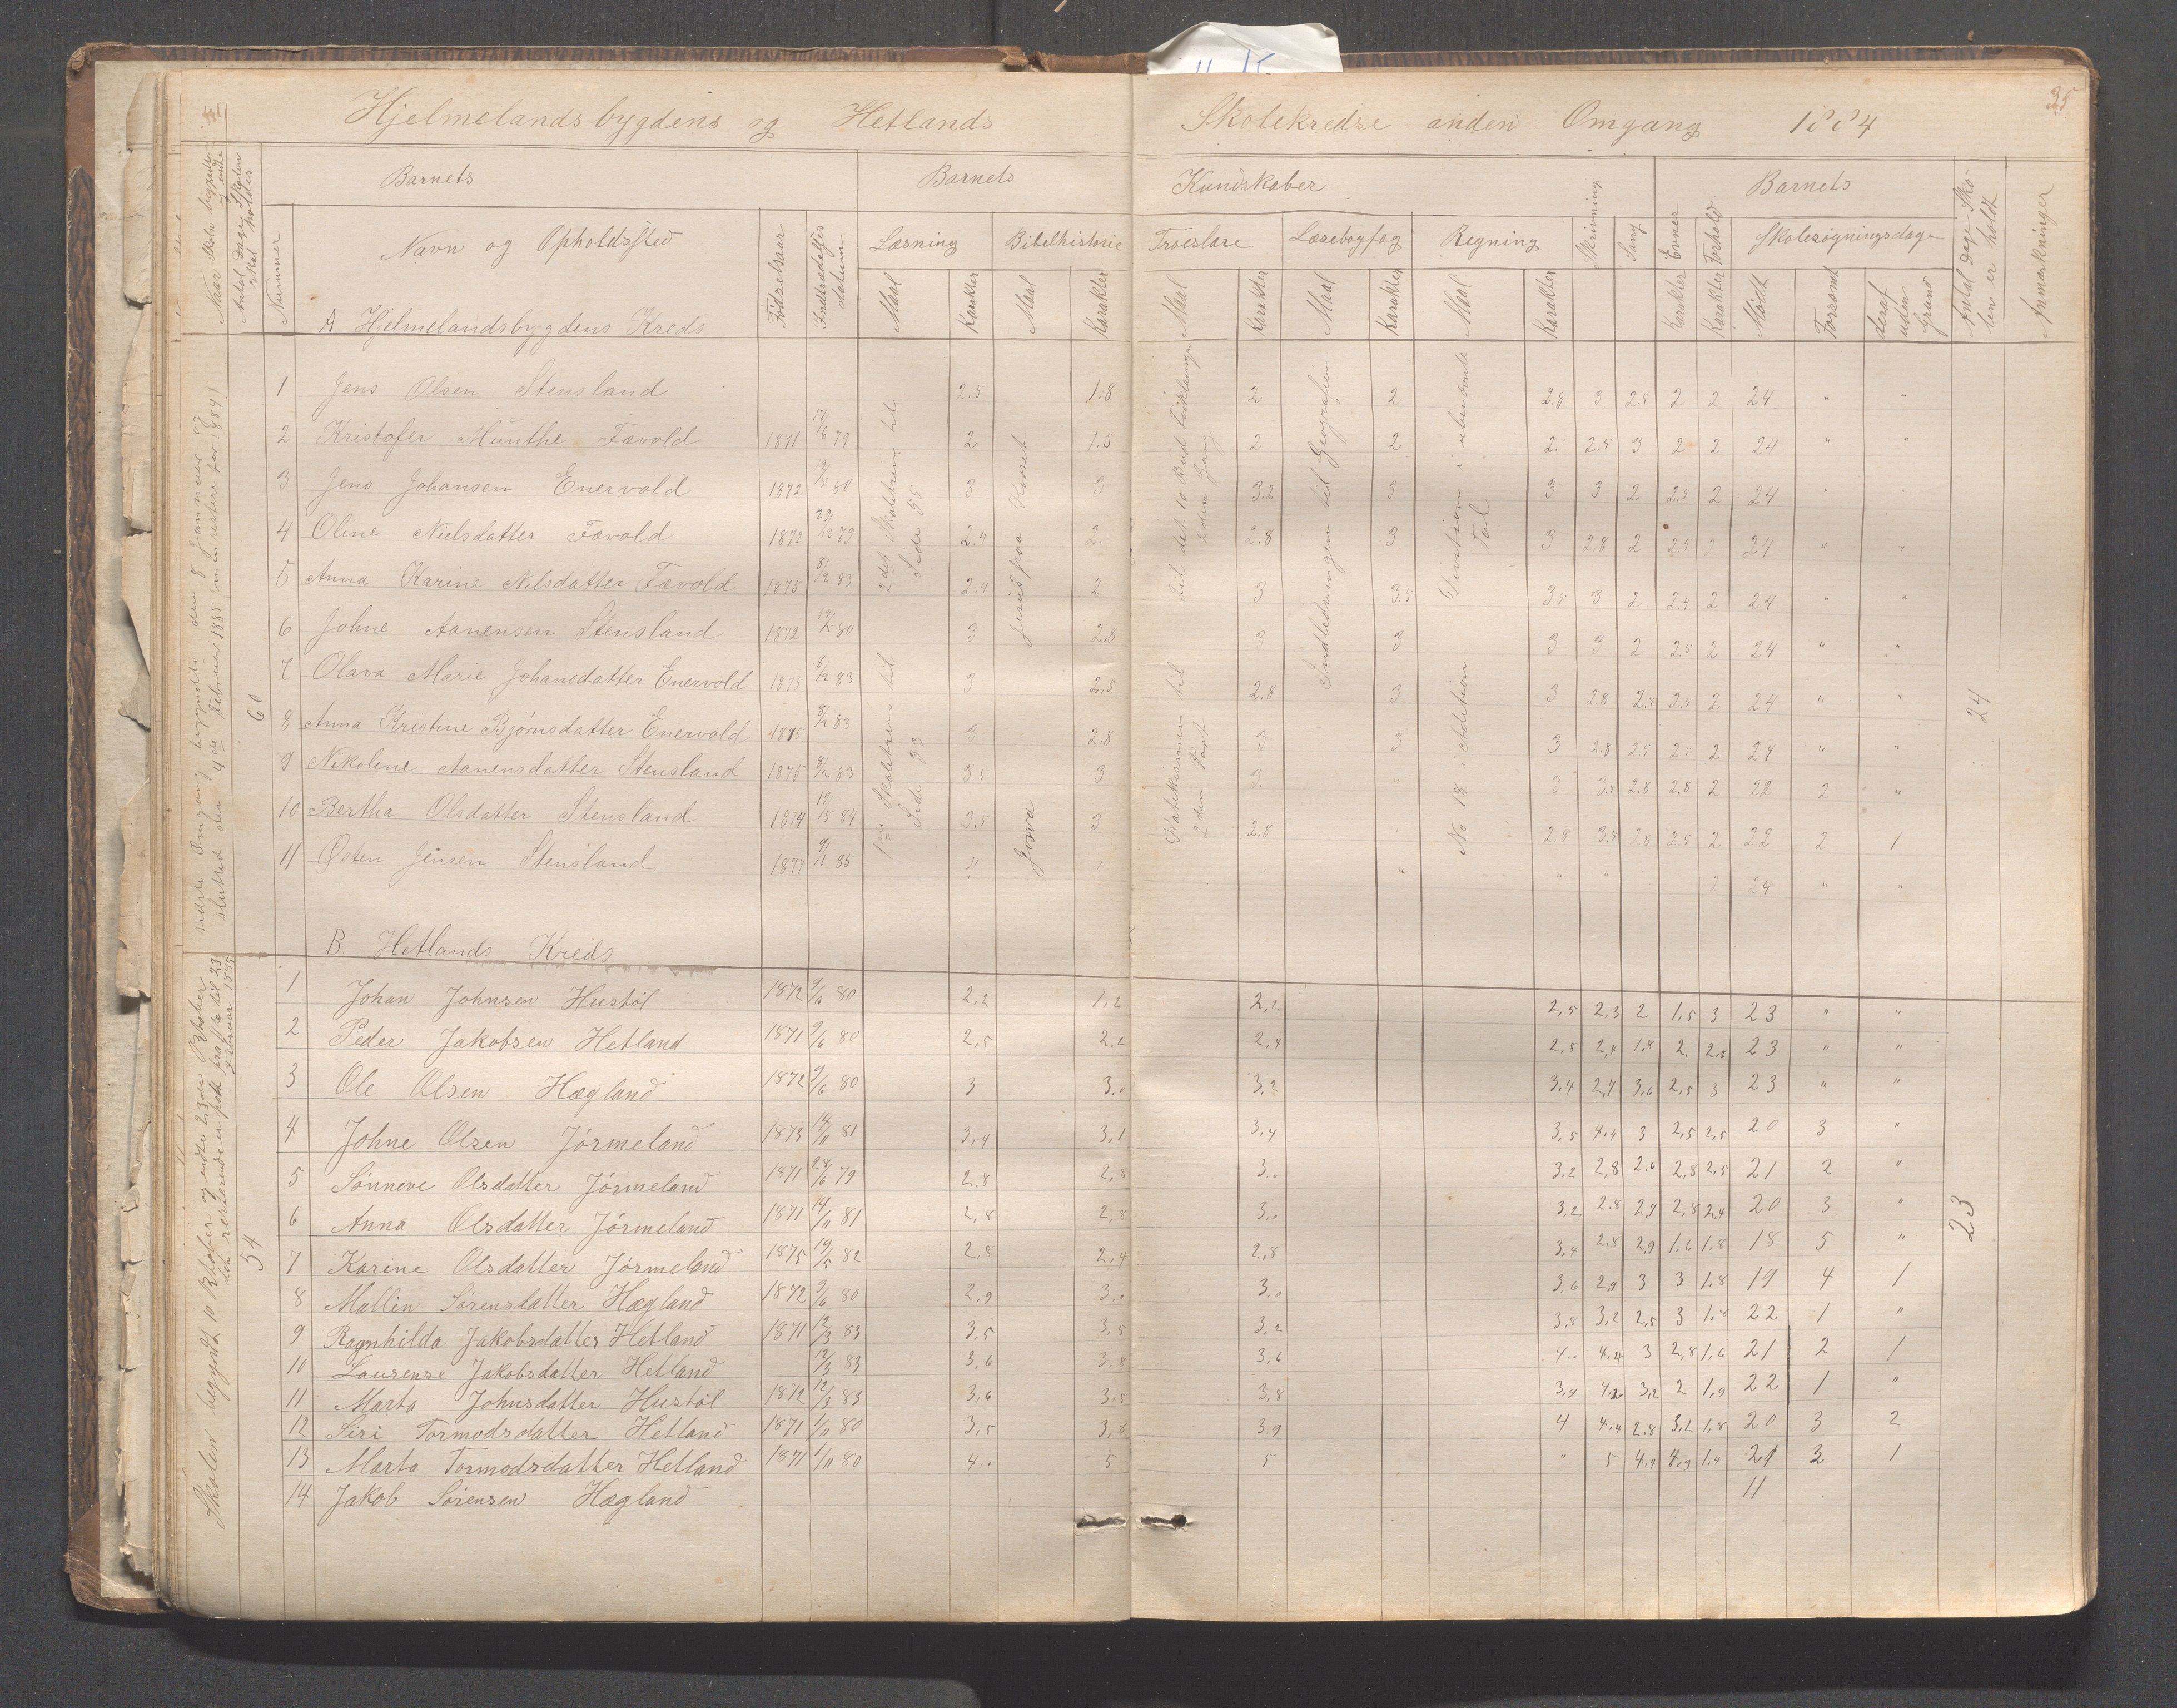 35
Hjelmelandsbygdens og Hetlands Skolekredse anden Omgang 1884
Naar Skolen begyndte og endte
Antal Dage Skolen skal holdes
Nummer
Barnets
Navn og Opholdssted
Fødselsaar
Indtrædelsesdatum
Barnets Kundskaber
Læsning
Maal
Karakter
Bibelhistorie
Maal
Karakter
Troeslære
Maal
Karakter
Læsebogfag
Maal
Karakter
Regning
Maal
Karakter
Skrivning
Sang
Barnets
Evner
Karakter
Forhold
Karakter
Skolesøgningsdage
Mødt
Forsømt
deraf uden Grund
Antal Dage Skolen er holdt
Anmærkninger
A Hjelmelandsbygdens Kreds
60
2det Skoletrin til Side 55
1ste Skoletrin til Side 93
Jesus paa Korset
Josva
Til det 10 Bud Forklaringen 2den Gang
Katekismen til 2den Part
Indledningen til Geografien
Division i ubenævnte Tal
No 18 i Addition
24
1 Jens Olsen Stensland 2.5 1.8 2 2 2.8 3 2.5 2 2 24 " "
2 Kristofer Munthe Fævold 1871 17/6 79 2 1.5 2 2 2. 2.5 3 2 2 24 " "
3 Jens Johansen Enervold 1872 80 3 3 3.2 3 3 3 2 2.5 2 24 " "
4 Oline Nielsdatter Fævold 1872 29/12 79 2.4 2. 2.8 3 3 2.8 2 2.5 2 24 " "
5 Anna Karine Nilsdatter Fævold 1875 8/12 83 2.4 2 3 3.5 3.5 3 2 2.4 2 24 " "
6 Johne Aanensen Stensland 1872 80 3 2.8 3 3 3 3 2 2.5 2 24 " "
7 Olava Marie Johansdatter Enervold 1875 8/12 83 3 2,5 2.8 3 3 2.8 2.5 2.5 2 24 " "
8 Anna Kristine Bjørnsdatter Enervold 1875 8/12 83 3 2.8 3 3 3 2.8 2.5 2.5 2 24 " "
9 Nikoline Aanensdatter Stensland 1875 8/12 83 3.5 3 3. 3 3.5 2.8 2.8 2 22 2 "
10 Bertha Olsdatter Stensland 1874 84 3.5 3 2.8 2.8 3.5 2.8 2.5 2 22 2 1
11 Østen Jensen Stensland 1877 9/1 85 4 " " " 2 24 " "
B Hetlands Kreds
54
23
1 Johan Johnsen Hustøl 1872 9/6 80 2,2 1,2 2,2 2,5 2,3 2 1,5 3 23 " "
2 Peder Jakobsen Hetland 1871 9/6 80 2,5 2,2 2,4 2,5 2,4 1,8 2. 2,5 23 " "
3 Ole Olsen Hægland 1872 9/6 80 3 3.. 3,2 3.4 2,7 3,6 2,5 3 23 " "
4 Johne Olsen Jørmeland 1873 14/11 81 3,4 3,1 3,4 3,5 4.4 3 2,5 2,5 20 3 "
5 Sønneve Olsdatter Jørmeland 1871 28/6 79 2.8 2,8 3.. 3.2 2,8 2.6 2,8 2,5 21 2 "
6 Anna Olsdatter Jørmeland 1871 14/11 81 2,8 2,8 3.. 3,2 2.8 2,7 2,8 2,4 20 3 "
7 Karine Olsdatter Jørmeland 1875 19/5 82 2,8 2,4 2,8 3,4 2,8 2,9 1,6 1,8 18 5 "
8 Mallin Sørensdatter Hægland 1872 9/6 80 2,9 3.. 3.. 3,6 2,9 3 3 1,8 19 4 1
9 Ragnhilda Jakobsdatter Hetland 1871 12/3 83 3,5 3,5 3,2 3,8 3,2 2,5 3 1,8 22 1 "
10 Laurense Jakobsdatter Hetland 12/3 83 3,6 3,8 3,6 4.. 4.4 3 2,8 1,6 21 2 1
11 Marta Johnsdatter Hustøl 1872 12/3 83 3,6 3,5 3,8 3,9 4,2 3,2 2 1,9 22 1 "
12 Siri Tormodsdatter Hetland 1871 1/11 80 3,5 3,8 3,9 4 4,4 2.8 3,2 1,8 20 3 2
13 Marta Tormodsdatter Hetland 1871 1/11 80 4.. 5 5 " 5 4,9 4,9 1,4 21 2 1
14 Jakob Sørensen Hægland 11